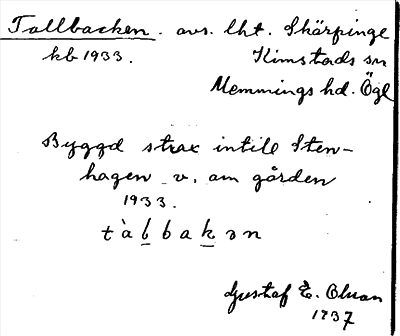 Tallbacken. avs. lht. Skärpinge
kb 1933. Kimstads sn
Memmings hd. Ögl
Byggd strax intill Sten-
hagen v. om gården
1933.
tàlbakən
Gustaf E. Olsson
1937